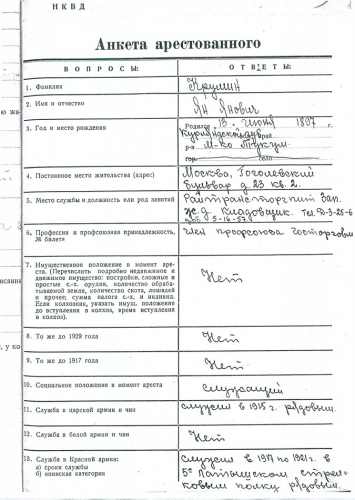 НКВД
Анкета арестованного
ВОПРОСЫ:
ОТВЕТЫ:
1. Фамилия
Крумин
2. Имя и отчество
Ян Янович
3. Год и место рождения
Родился 13. июня 1897 г.
Курляндская губ.
край
р-н м-ко Туккум.
гор. село
4. Постоянное место жительства (адрес)
Москва, Гоголевский
бульвар д. 23 кв. 2.
5. Место службы и должность или род занятий
Зап.
ж.д. Кладовщик. Тел.
6. Профессия и профсоюзная принадлежность, № билета
член профсоюза Госторговли
7. Имущественное положение в момент аре-
ста. (Перечислить подробно недвижимое и
движимое имущество: постройки, сложные и
простые с.-х. орудия, количество обраба-
тываемой земли, количество скота, лошадей
и прочее; сумма налога с.-х. и индивид.
Если колхозник, указать имущ. положение
до вступления в колхоз, время вступления
в колхоз).
Нет
8. То же до 1929 года
Нет
9. То же до 1917 года
Нет
10. Социальное положение в момент ареста
служащий
11. Служба в царской армии и чин
служил в 1915 г. рядовым.
12. Служба в белой армии и чин
Нет
13. Служба в Красной армии:
а) сроки службы
б) воинская категория
служил в 1917 по 1921 г. в
5м Латышском стрел-
ковым полку рядовым.